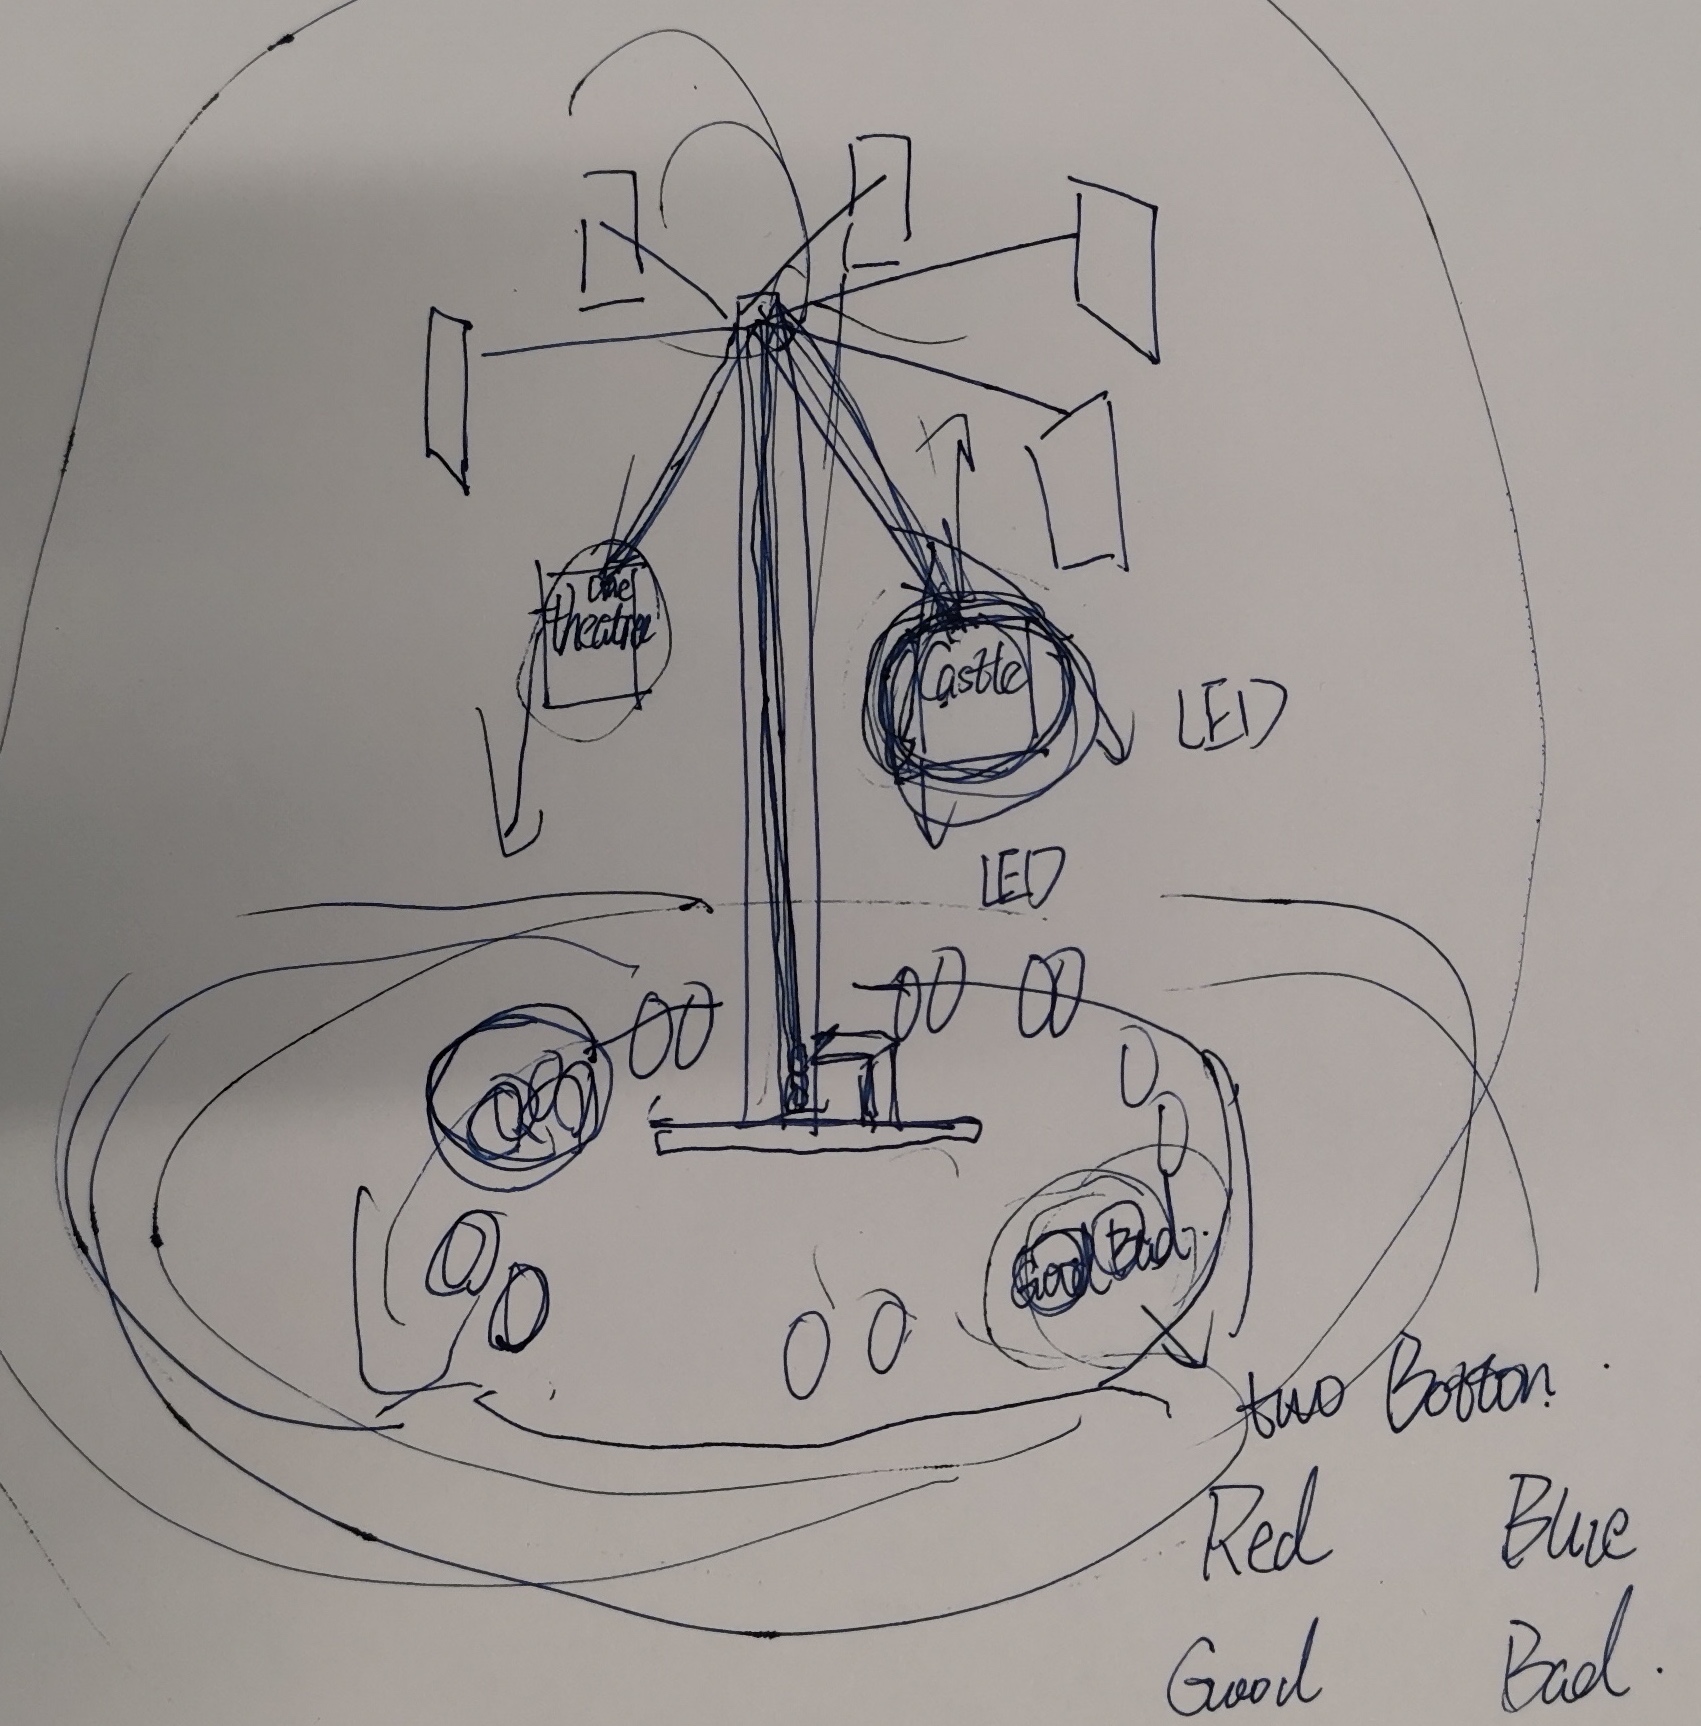 One
theatre
Castle
LED
LED
Good Bad.
two Botton.
Red Blue
Good Bad.